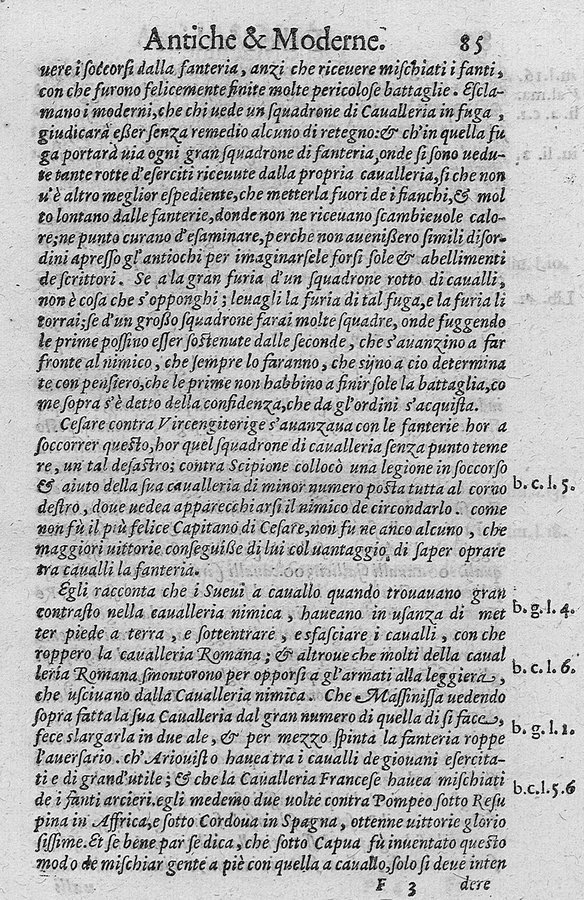 Antiche & Moderne. 85
uere i soccorsi dalla fanteria, anzi che riceuere mischiati i fanti,
con che furono felicemente finite molte pericolose battaglie. Escla-
mano i moderni, che chi vede un squadrone di Caualleria in fuga,
giudicarà esser senza remedio alcuno di retegno: & ch'in quella fu
ga portarà uia ogni gran squadrone di fanteria, onde si sono vedu-
te tante rotte d'eserciti riceuute dalla propria caualleria, si che non
u'è altro meglior espediente, che metterla fuori de i fianchi, & mol
to lontano dalle fanterie, donde non ne riceuano scambieuole calo-
re; ne punto curano d'esaminare, perche non auenissero simili disor-
dini apresso gl'antiochi per imaginarsele forsi fole & abellimenti
de scrittori. Se a la gran furia d'un squadrone rotto di caualli,
non è cosa che s'opponghi; leuagli la furia di tal fuga, e la furia li
torrai; se d'un grosso squadrone farai molte squadre, onde fuggendo
le prime possino esser sostenute dalle seconde, che s'auanzino a far
fronte al nimico, che sempre lo faranno, che sijno a cio determina
te con pensiero, che le prime non habbino a finir sole la battaglia, co
me sopra s'è detto della confidenza, che da gl'ordini s'acquista.
Cesare contra Vircengitorige s'auanzaua con le fanterie hor a
soccorrer questo, hor quel squadrone di caualleria senza punto teme
re, un tal desastro; contra Scipione collocò una legione in soccorso
& aiuto della sua caualleria di minor numero posta tutta al corno b. c. l. 5.
destro, doue uedea apparecchiarsi il nimico de circondarlo. come
non fù il più felice Capitano di Cesare, non fu ne anco alcuno, che
maggiori uittorie conseguisse di lui col uantaggio di saper oprare
tra caualli la fanteria.
Egli racconta che i Sueui a cauallo quando trouauano gran
contrasto nella caualleria nimica, haueano in usanza di met b. g. l. 4.
ter piede a terra, e sottentrare, e sfasciare i caualli, con che
roppero la caualleria Romana; & altroue che molti della caual
leria Romana smontorono per opporsi a gl'armati alla leggiera, b. c. l. 6.
che usciuano dalla Caualleria nimica. Che Massinissa uedendo
sopra fatta la sua Caualleria dal gran numero di quella di si face,
fece slargarla in due ale, & per mezzo spinta la fanteria roppe b. g. l. 1.
l'auersario. ch'Ariouisto hauea tra i caualli de giouani esercita-
ti e di grand'utile; & che la Caualleria Francese hauea mischiati
de i fanti arcieri. egli medemo due uolte contra Pompeo sotto Resu b. c. l. 5. 6
pina in Affrica, e sotto Cordoua in Spagna, ottenne uittorie glorio
sissime. Et se bene par se dica, che sotto Capua fù inuentato questo
modo de mischiar gente a piè con quella a cauallo, solo si deue inten
F 3 dere